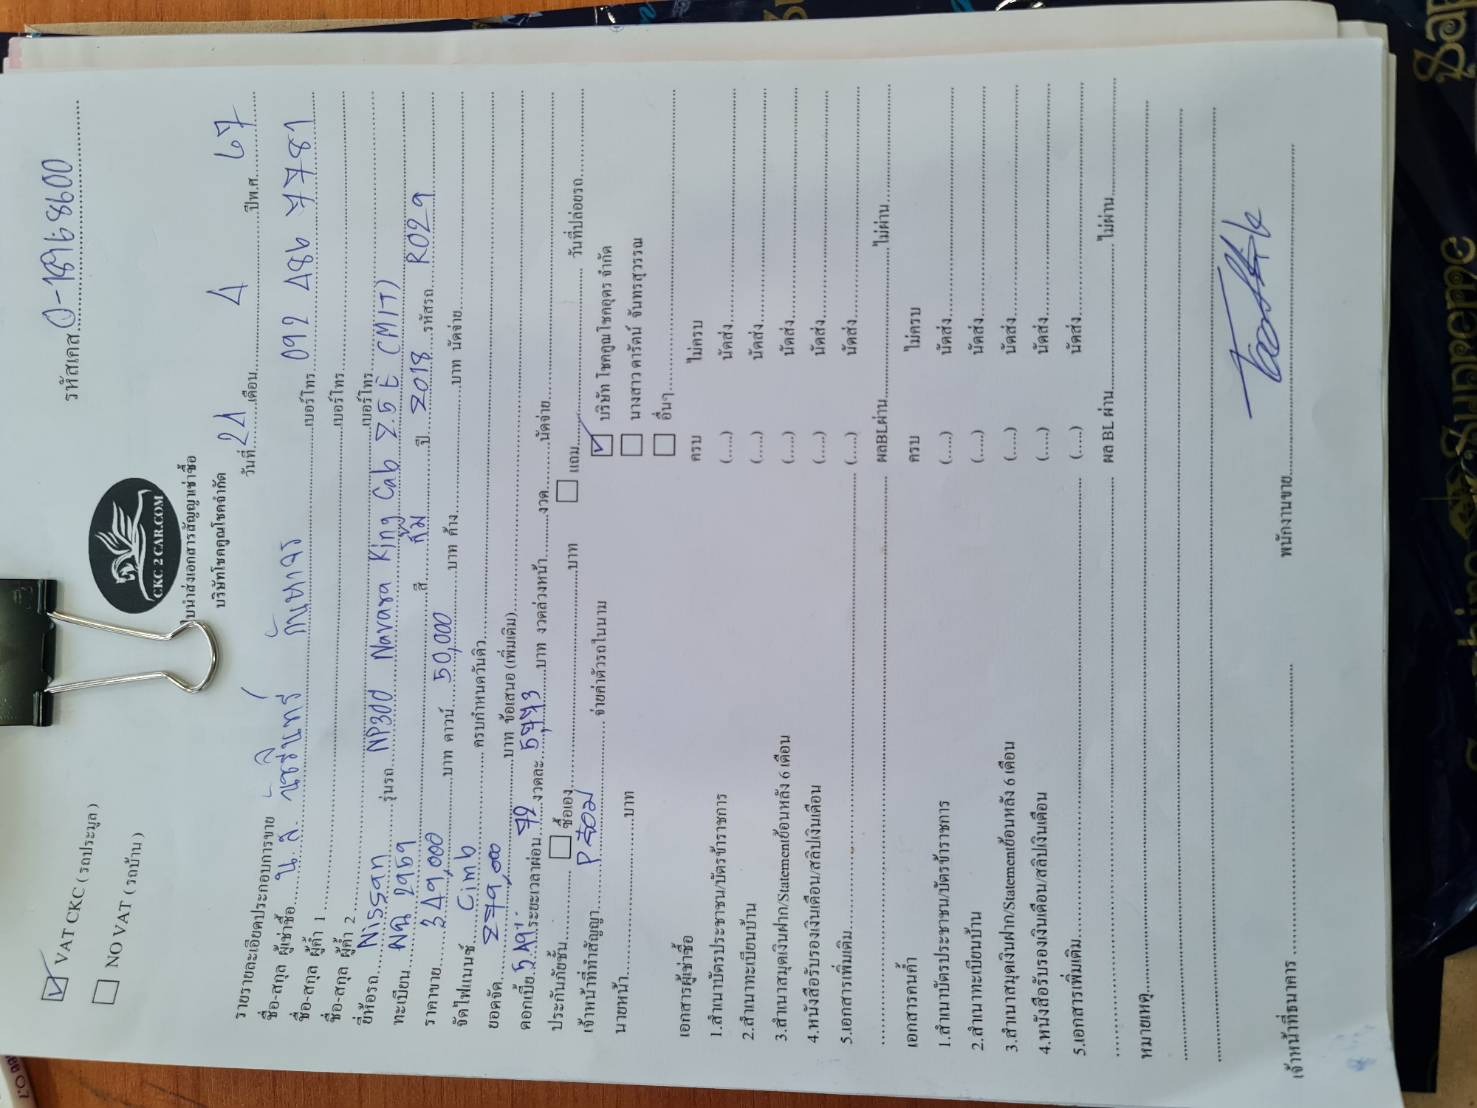 รหัสเคส 0-18968600
☑ VAT CKC ( รถประมูล )
☐ NO VAT ( รถบ้าน )
CKC 2 CAR.COM
บนำส่งเอกสารสัญญาเช่าซื้อ
บริษัทโชคคูณโชคจำกัด
วันที่ 24 เดือน 4 ปีพ.ศ. 67
รายรายละเอียดประกอบการขาย
ชื่อ-สกุล ผู้เช่าซื้อ น.ส. เบอร์โทร 092 486 7781
ชื่อ-สกุล ผู้ค้ำ 1 เบอร์โทร
ชื่อ-สกุล ผู้ค้ำ 2 เบอร์โทร
ยี่ห้อรถ Nissan รุ่นรถ NP300 Navara King Cab 2.5 E (MIT)
ทะเบียน ผฉ 2969 สี ส้ม ปี 2018 รหัสรถ R029
ราคาขาย 349,000 บาท ดาวน์ 50,000 บาท ค้าง บาท นัดจ่าย
จัดไฟแนนซ์ Cimb ครบกำหนดวันคิว
ยอดจัด 279,000 บาท ข้อเสนอ (เพิ่มเติม)
ดอกเบี้ย ระยะเวลาผ่อน 72 งวดละ 5,773 บาท งวดล่วงหน้า งวด นัดจ่าย
ประกันภัยชั้น ☐ ซื้อเอง บาท ☐ แถม วันที่ปล่อยรถ
เจ้าหน้าที่ทำสัญญา จ่ายค่าตัวรถในนาม ☑ บริษัท โชคคูณโชคอุดร จำกัด
นายหน้า บาท ☐ นางสาว ดารัตน์ จันทรสุวรรณ
☐ อื่นๆ
เอกสารผู้เช่าซื้อ ครบ ไม่ครบ
1.สำเนาบัตรประชาชน/บัตรข้าราชการ (.....) นัดส่ง
2.สำเนาทะเบียนบ้าน (.....) นัดส่ง
3.สำเนาสมุดเงินฝาก/Statementย้อนหลัง 6 เดือน (.....) นัดส่ง
4.หนังสือรับรองเงินเดือน/สลิปเงินเดือน (.....) นัดส่ง
5.เอกสารเพิ่มเติม (.....) นัดส่ง
ผลBLผ่าน ไม่ผ่าน
เอกสารคนค้ำ ครบ ไม่ครบ
1.สำเนาบัตรประชาชน/บัตรข้าราชการ (.....) นัดส่ง
2.สำเนาทะเบียนบ้าน (.....) นัดส่ง
3.สำเนาสมุดเงินฝาก/Statementย้อนหลัง 6 เดือน (.....) นัดส่ง
4.หนังสือรับรองเงินเดือน/สลิปเงินเดือน (.....) นัดส่ง
5.เอกสารเพิ่มเติม (.....) นัดส่ง
ผล BL ผ่าน ไม่ผ่าน
หมายเหตุ
เจ้าหน้าที่ธนาคาร พนักงานขาย